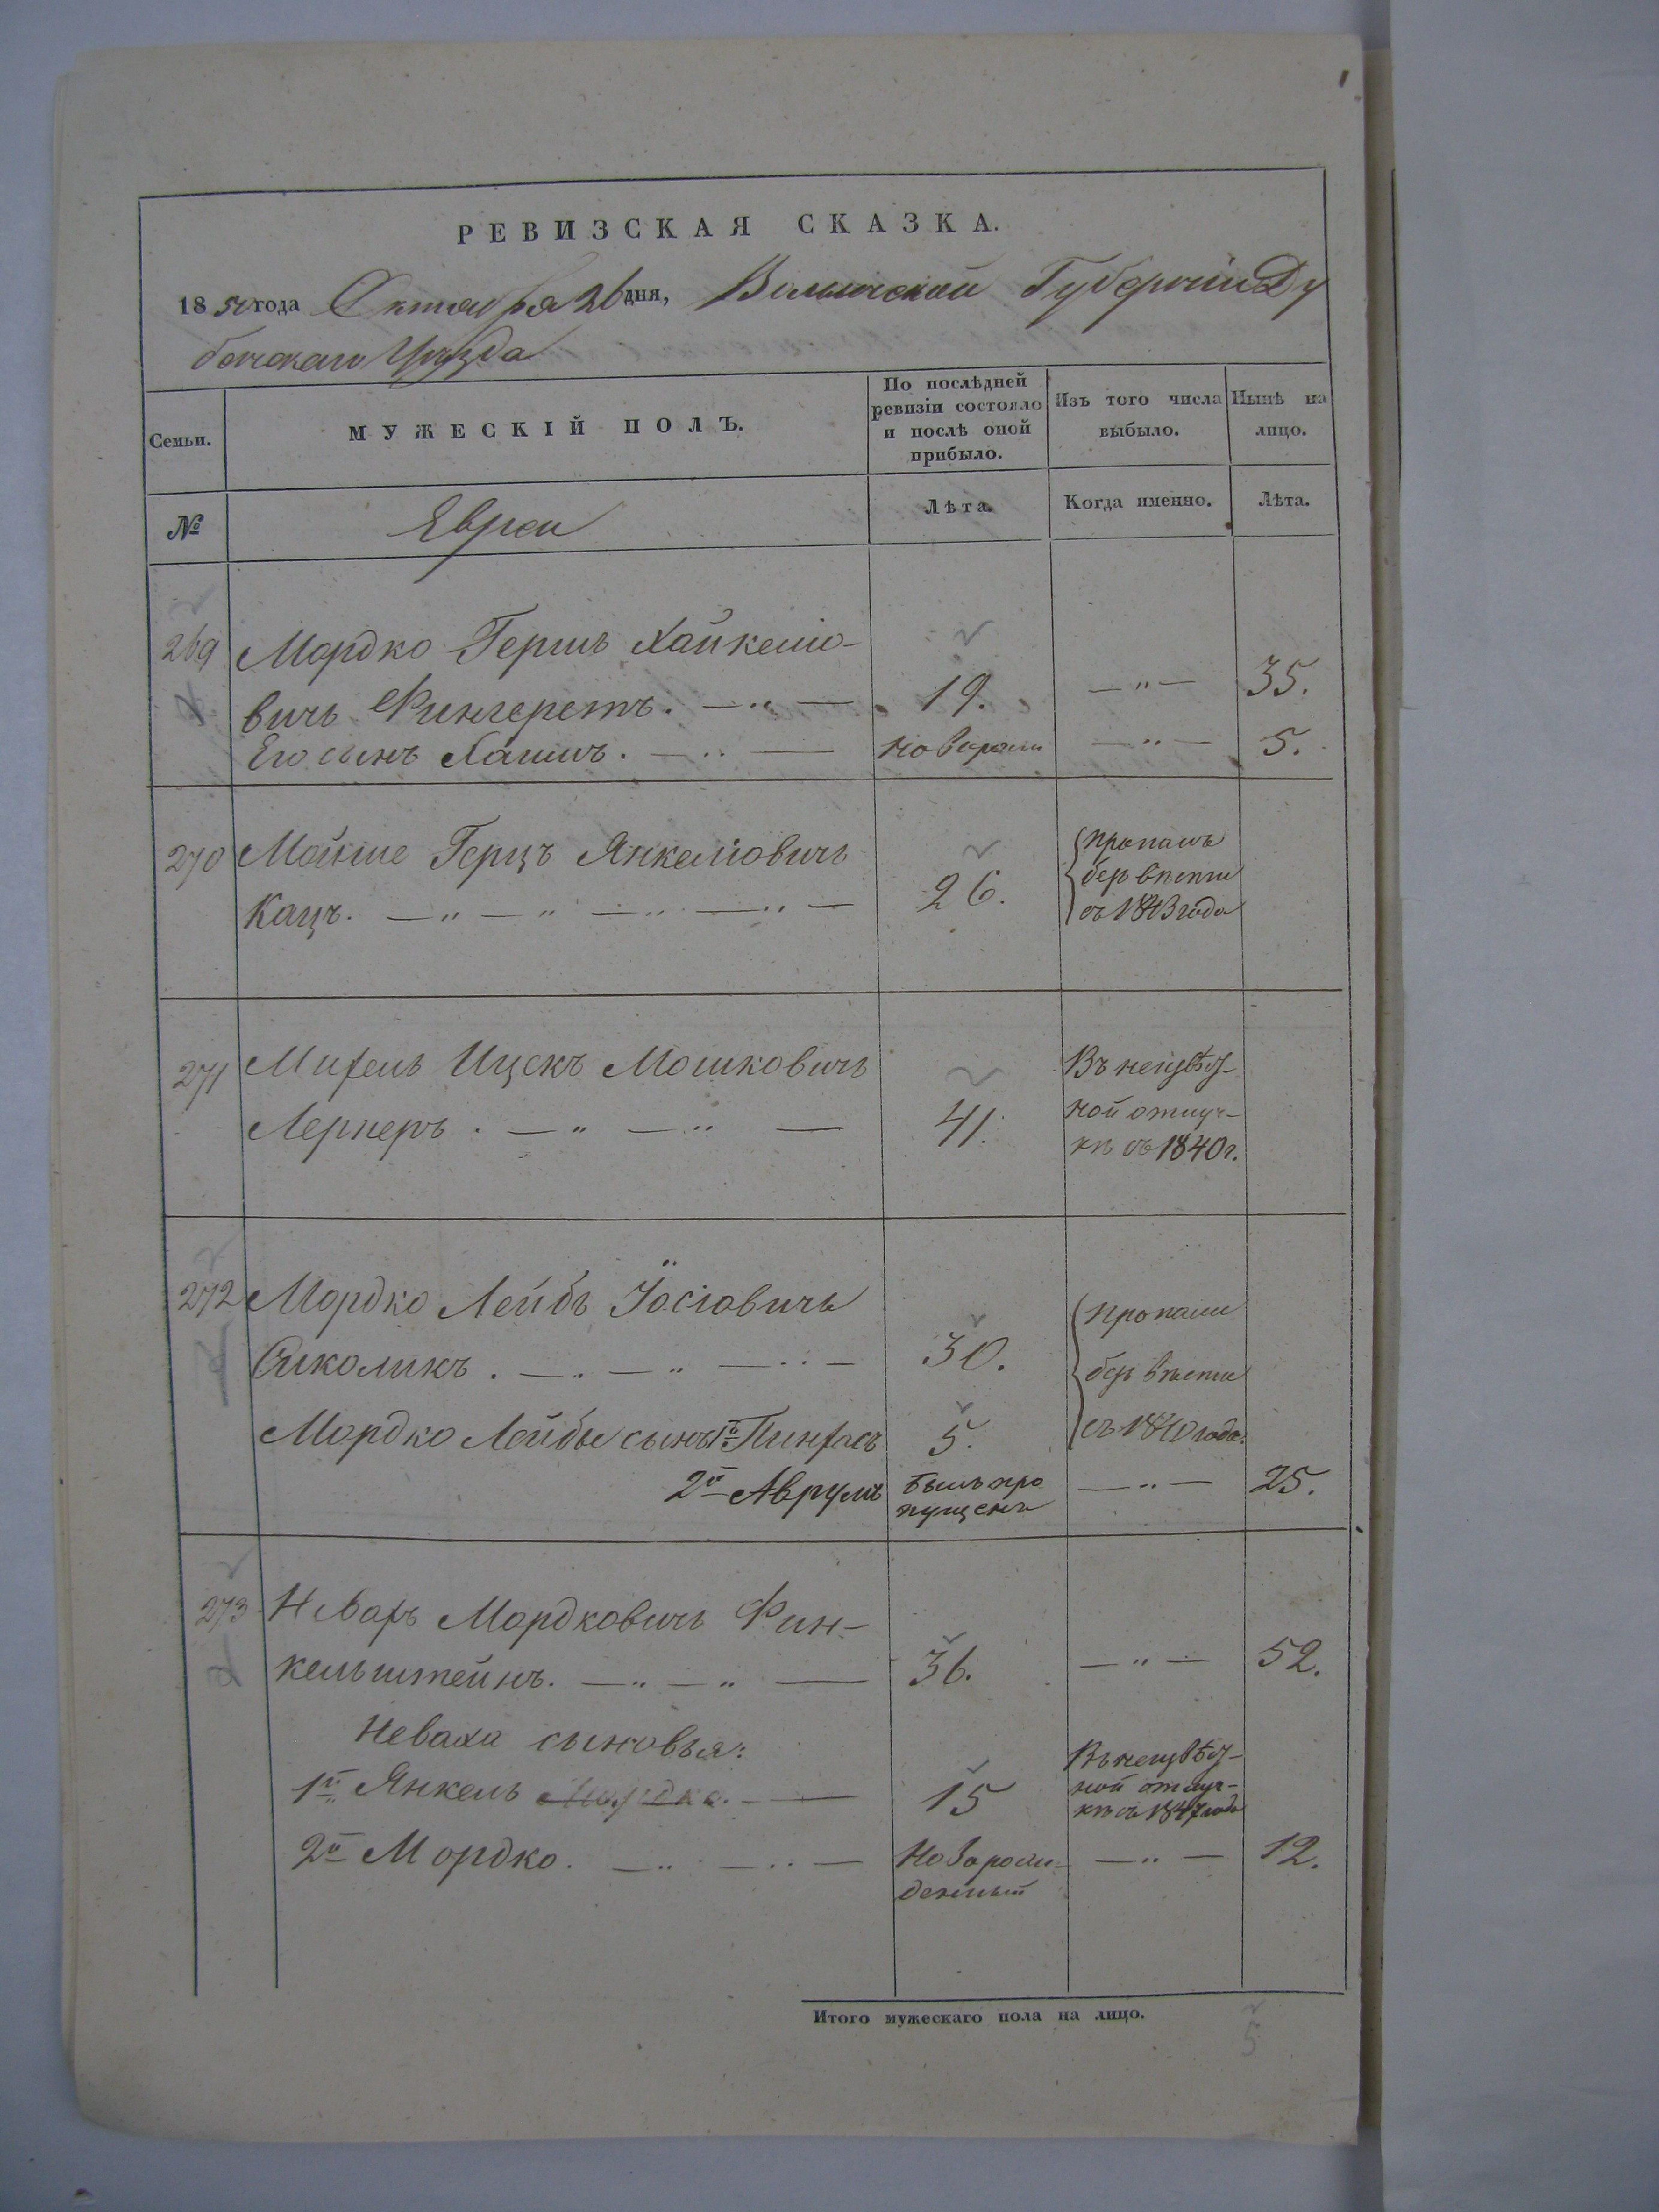 РЕВИЗСКАЯ СКАЗКА.
1850 года Октября 26 дня, Волынской Губерніи Ду
бенскаго Уѣзда
Семьи.
МУЖЕСКІЙ ПОЛЪ.
По послѣдней
ревизіи состояло
и послѣ оной
прибыло.
Изъ того числа
выбыло.
Нынѣ на
лицо.
№
Евреи
Лѣта.
Когда именно.
Лѣта.
269 Мордко Гершъ Хайкеліо-
вичъ Фингеретъ. — „ — 19. — „ — 35.
Его сынъ Хаимъ. — „ — новорожд — „ — 5.
270 Мойше Герцъ Янкеліовичъ
Кацъ. — „ — „ — „ — „ — 26.
Пропалъ
безъ вѣсти
съ 1843 года
271 Ицекъ Мошковичъ
Лернеръ. — „ — „ — 41.
Въ неизвѣст-
ной отлуч-
кѣ съ 1840 г.
272 Мордко Лейбъ Іосіовичъ
— „ — „ — 30.
Мордко Лейбы сынъ 1й Пинхасъ 5.
Пропали
безъ вѣсти
съ 1840 года.
2й Аврумъ былъ про
пущенъ — „ — 25.
273 Мордковичъ Фин-
кельштейнъ. — „ — „ — 36. — „ — 52.
Неваха сыновья:
1й Янкель Мордко. — 15
Въ неизвѣст-
ной отлуч-
кѣ съ 1847 года
2й Мордко. — „ — „ — Новорож-
денный — „ — 12.
Итого мужескаго пола на лицо.
5